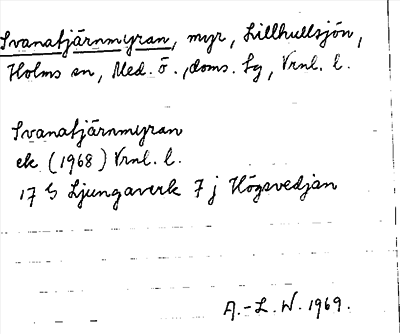 Svanatjärnmyran, myr, Lillhullsjön,
Holms sn, Med. ö., doms. lg, Vrnl. l.
Svanatjärnmyran
ek (1968) Vrnl. l.
17 G Ljungaverk 7 j Högsvedjan
A.-L. W. 1969.